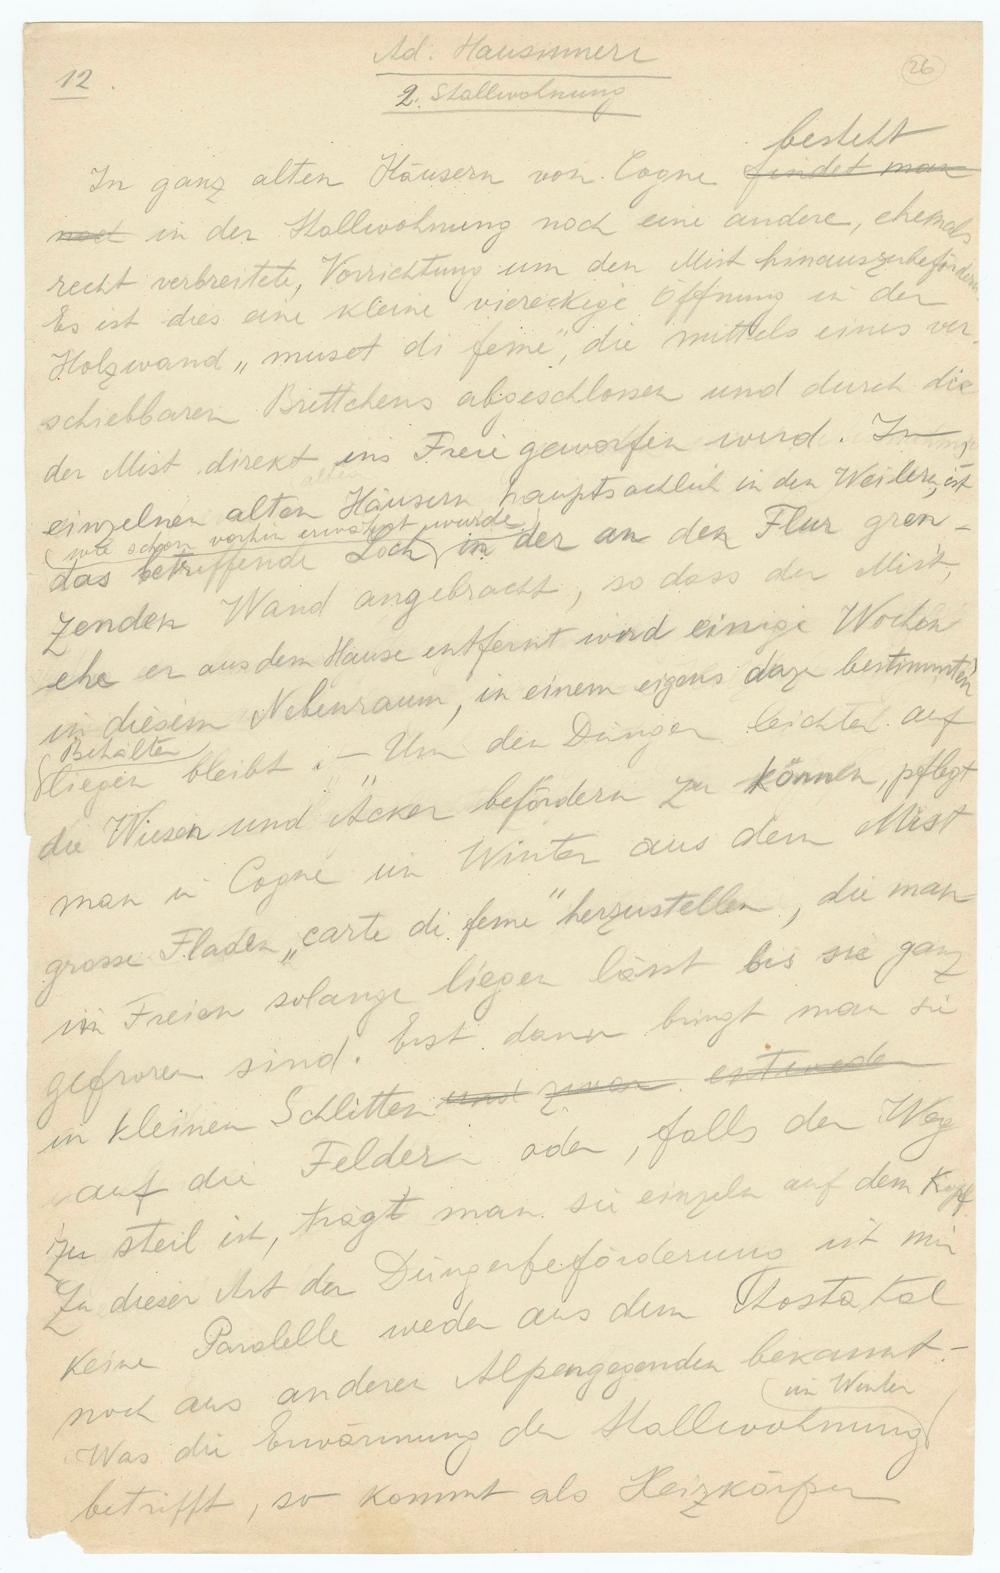 Ad. Hausinnere
12.
26
2. Stallwohnung
besteht
In ganz alten Häusern von Cogne findet man
noch in der Stallwohnung noch eine andere, ehemals
recht verbreitete, Vorrichtung um den Mist hinauszubefördern.
Es ist dies eine kleine viereckige Öffnung in der
Holzwand „muset di feme", die mittels eines ver-
schiebbaren Brettchens abgeschlossen und durch die
der Mist direkt ins Freie geworfen wird. In
einzelnen alten Häusern hauptsächlich in den Weilern, ist
(wie schon vorhin erwähnt wurde)
das betreffende Loch in der an den Flur gren-
zenden Wand angebracht, so dass der Mist,
ehe er aus dem Hause entfernt wird einige Wochen
in diesem Nebenraum, in einem eigens dazu bestimmten
Behälter
liegen bleibt. – Um den Dünger leichter auf
die Wiesen und Äcker befördern zu können, pflegt
man in Cogne im Winter aus dem Mist
grosse Fladen „carte di feme" herzustellen, die man
im Freien solange liegen lässt bis sie ganz
gefroren sind. Erst dann bringt man sie
in kleinen Schlitten und zwar entweder
auf die Felder oder, falls der Weg
zu steil ist, trägt man sie einzeln auf dem Kopf.
Zu dieser Art der Düngerbeförderung ist mir
keine Paralelle weder aus dem Aostatal
noch aus anderen Alpengegenden bekannt. –
im Winter
Was die Erwärmung der Stallwohnung
betrifft, so kommt als Heizkörper